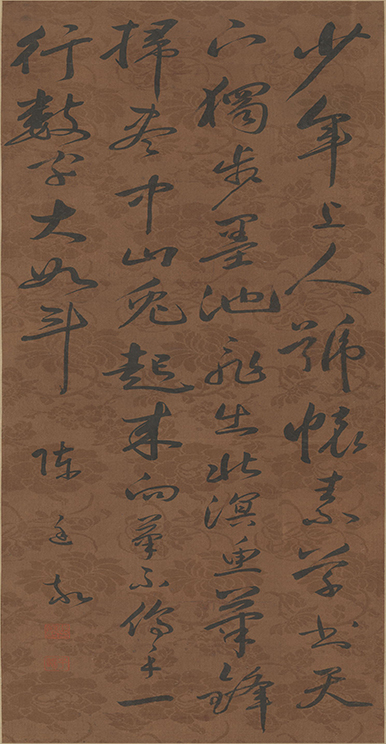 少年上人號懷素草書天
下獨步墨池飛出北溟魚筆鋒
掃盡中山兔起來向筆不停手一
行數字大如斗
陳廷敬